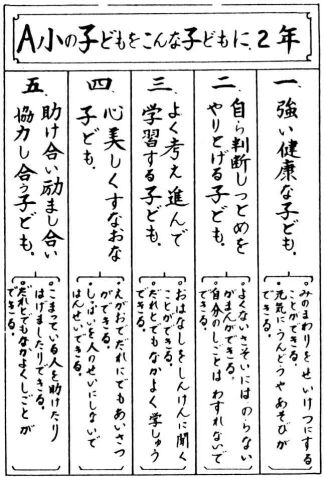 A小の子どもをこんな子どもに、2年
一、強い健康な子ども。
・みのまわりをせいけつにする
ことができる。
・元気にうんどうやあそびが
できる。
二、自ら判断しつとめを
やりとげる子ども。
・よくないさそいにはのらない
がまんができる。
・自分のしごとはわすれないで
できる。
三、よく考え進んで
学習する子ども。
・おはなしをしんけんに聞く
ことができる。
・だれとでもなかよく学しゅう
できる。
四、心美しくすなおな
子ども。
・えがおでだれにでもあいさつ
ができる。
・しっぱいを人のせいにしないで
はんせいできる。
五、助け合い励まし合い
協力し合う子ども。
・こまっている人を助けたり
はげましたりできる。
・だれとでもなかよくしごとが
できる。